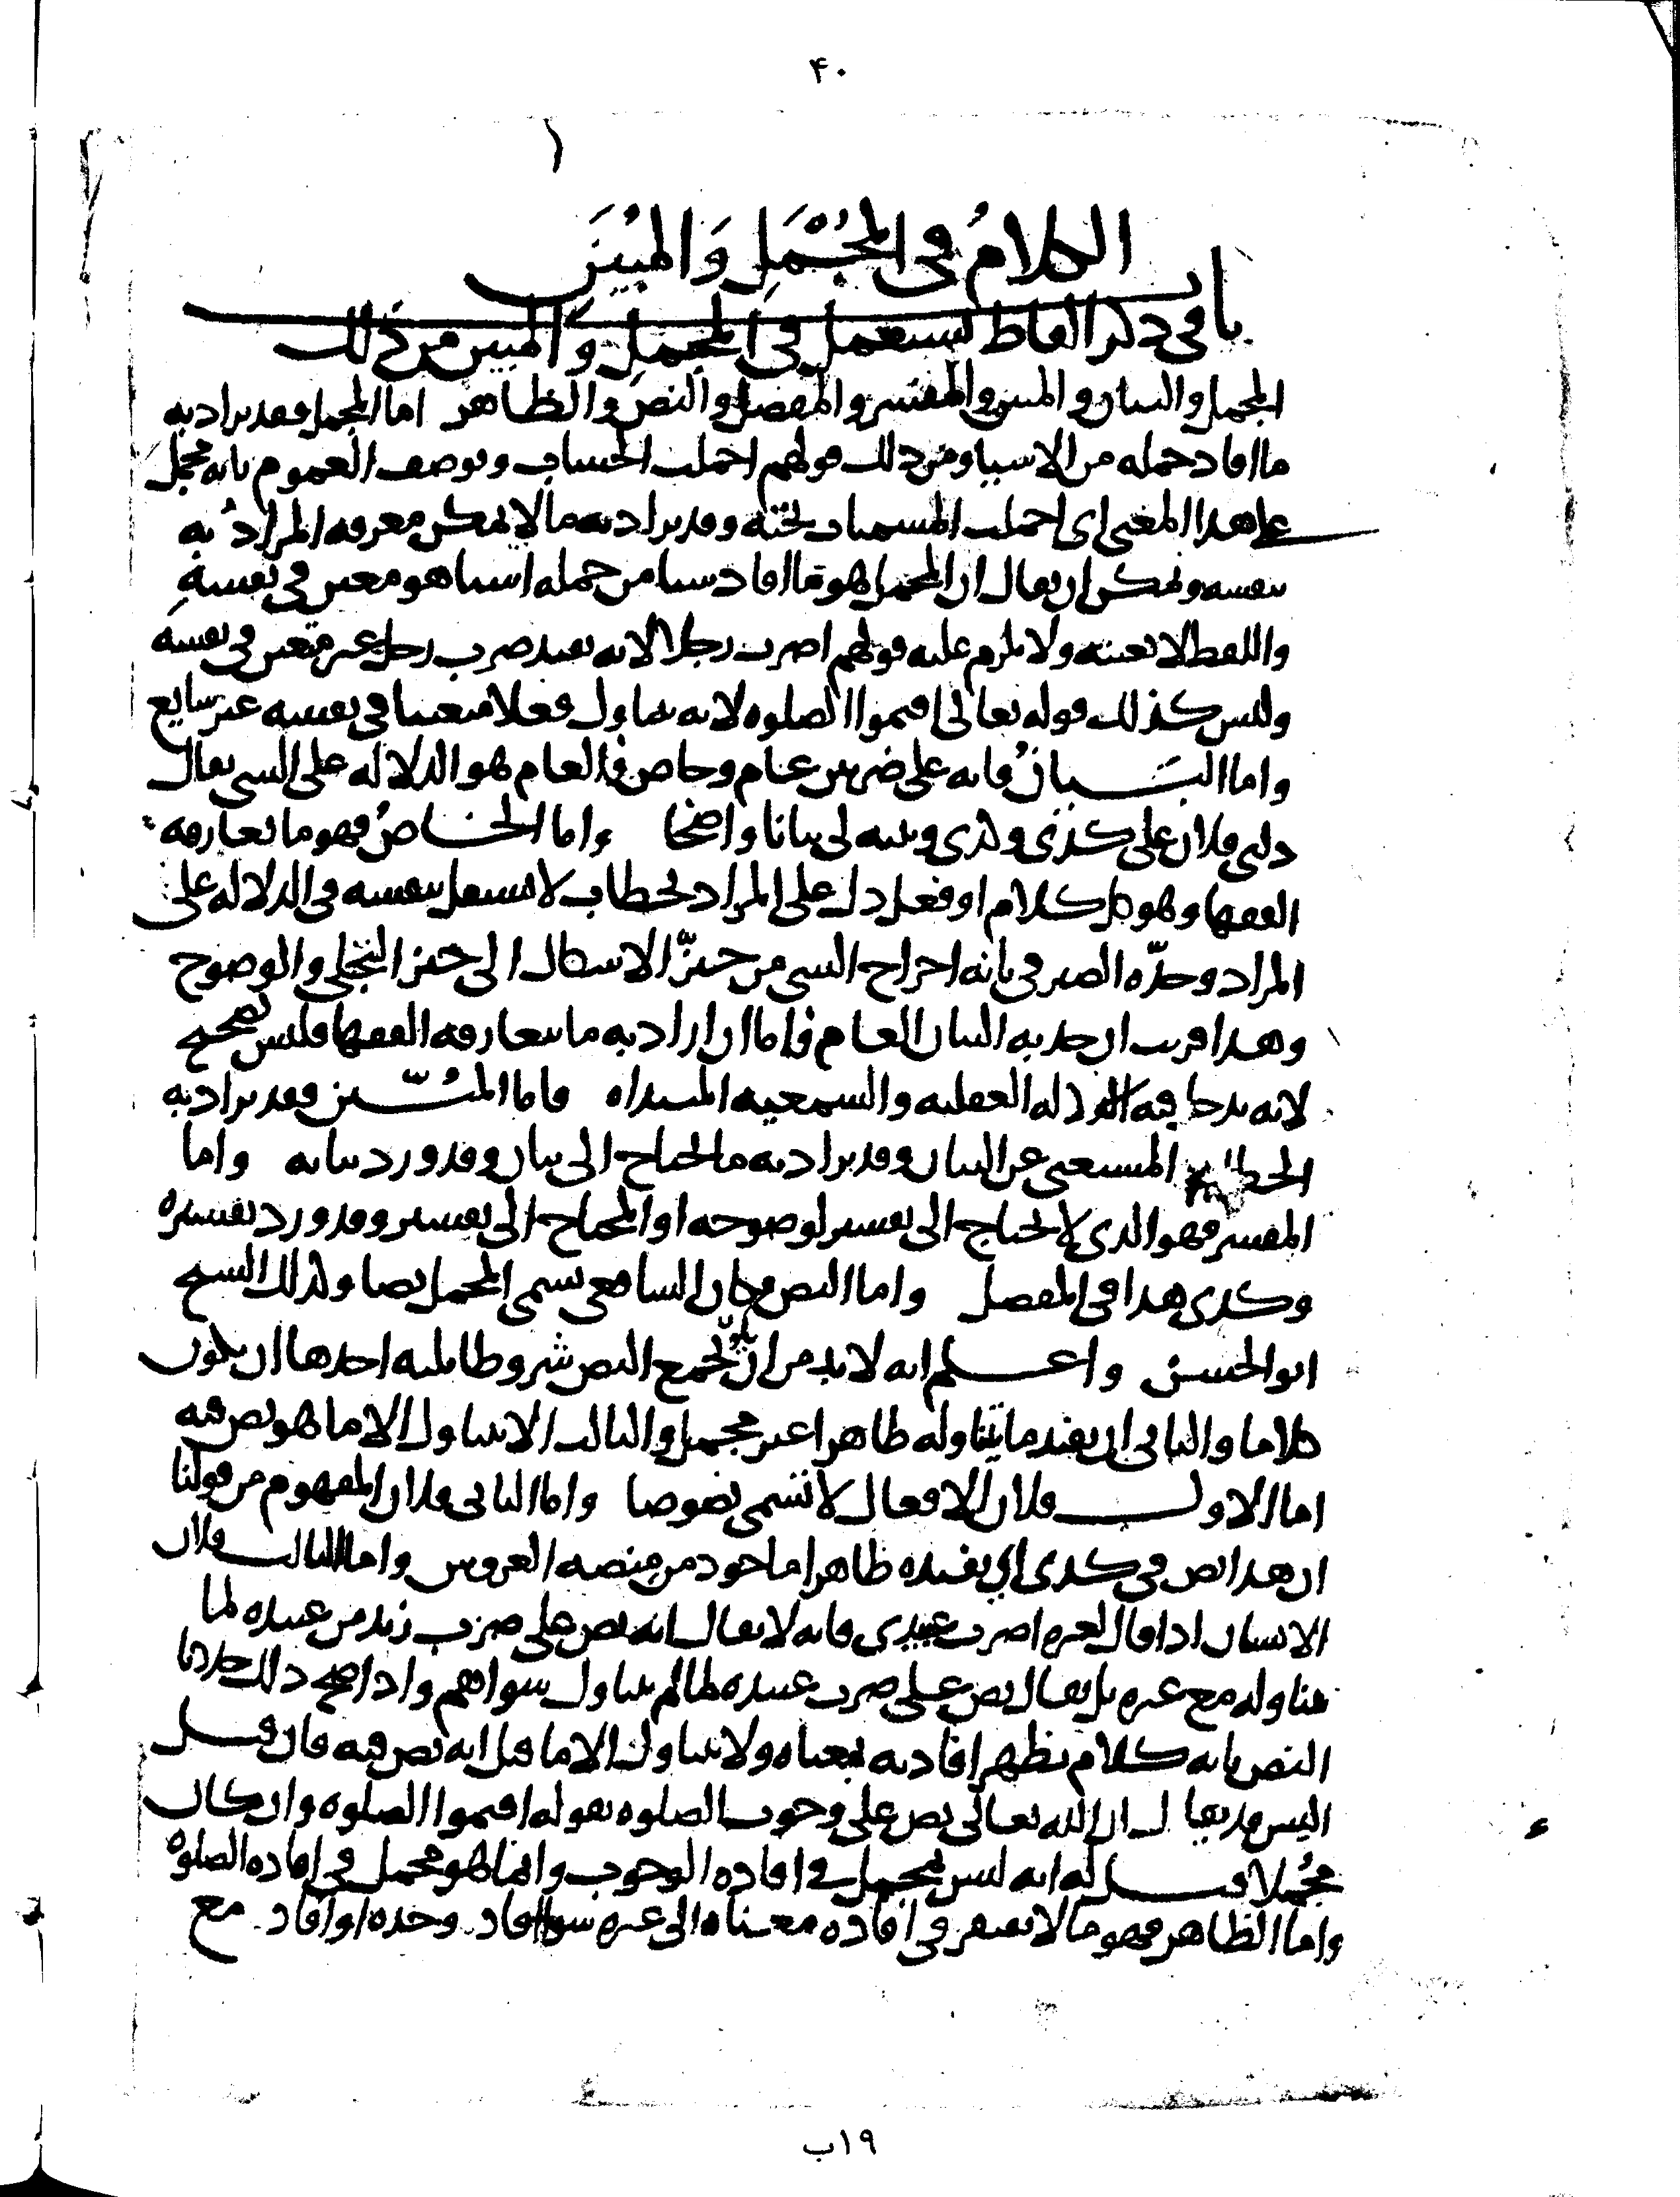 ۴۰
الكلامُ في المجُمَلِ وَالمبُيَن
باب في ذكر الفاظ تستعمل في المجمل والمبين من ذلك
المجمل والبيان والمبين والمفسر والمفصل والنص والظاهر اما المجمل فقد يراد به
ما افاد جمله من الاشيا ومن ذلك قولهم اجملت الحساب ويوصف العموم بانه مجمل
على هذا المعنى اى اجملت المسميات تحته وقد يراد به ما لا يمكن معرفه المراد به
بنفسه ويمكن ان يقال ان المجمل هو ما افاد شيا من جمله اشيا هو معين في نفسه
واللفظ لا يعينه ولا يلزم عليه قولهم اضرب رجلا لانه يفيد ضرب رجل غير معين في نفسه
وليس كذلك قوله تعالى اقيموا الصلوه لانه يتناول فعلا متعينا في نفسه غير شايع
واما البيان فانه على ضربين عام وخاص فالعام هو الدلاله على الشى يقال
دلني فلان على كذى وكذى وبينه لى بيانا واضحا واما الخاصُ فهو ما تعارفه
الفقها وهو كل كلام او فعل دل على المراد بخطاب لا يستقل بنفسه في الدلاله على
المراد وحدّه الصيرفى بانه اخراج الشى من حيّز الاشكال الى حيز التجلى والوضوح
وهذا قريب ان حد به البيان العام فاما ان اراد به ما يتعارفه الفقها فليس بصحيح
لانه يدخل فيه الادله العقليه والسمعيه المبتداه فاما المُبيّن فقد يراد به
الخطاب المستغنى عن البيان وقد يراد به ما احتاج الى بيان وقد ورد بيانه واما
المفسر فهو الذى لا يحتاج الى تفسير لوضوحه او المحتاج الى تفسير وقد ورد تفسيره
وكذى هذا في المفصل واما النص فكان الشافعى يسمى المجمل نصا وكذلك الشيخ
ابو الحسن واعلم انه لا بد من ان يجمع النص شروطا ثلثه احدها ان يكون
كلاما والثانى ان يفيد ما يتناوله ظاهرا غير مجمل والثالث الا يتناول الا ما هو نص فيه
اما الاول فلان الافعال لا تسمى نصوصا واما الثانى فلان المفهوم من قولنا
ان هذا نص في كذى اى يفيده ظاهرا ماخوذ من منصه العروس واما الثالث فلان
الانسان اذا قال لغيره اضرب عبيدى فانه لا يقال انه نص على ضرب زيد من عبيده لما
تناوله مع غيره بل يقال نص على ضرب عبيده لما لم يتناول سواهم واذا صح ذلك حددنا
النص بانه كلام تظهر افادته لمعناه ولا يتناول الا ما قيل انه نص فيه فان قيل
اليس قد يقال ان الله تعالى نص على وجوب الصلوه بقوله اقيموا الصلوه وان كان
مجُملا قيل له انه ليس بمجمل في افاده الوجوب وانما هو مجمل في افاده الصلوه
واما الظاهر فهو ما لا يفتقر في افاده معناه الى غيره سوا افاد وحده او افاد مع
١٩ب